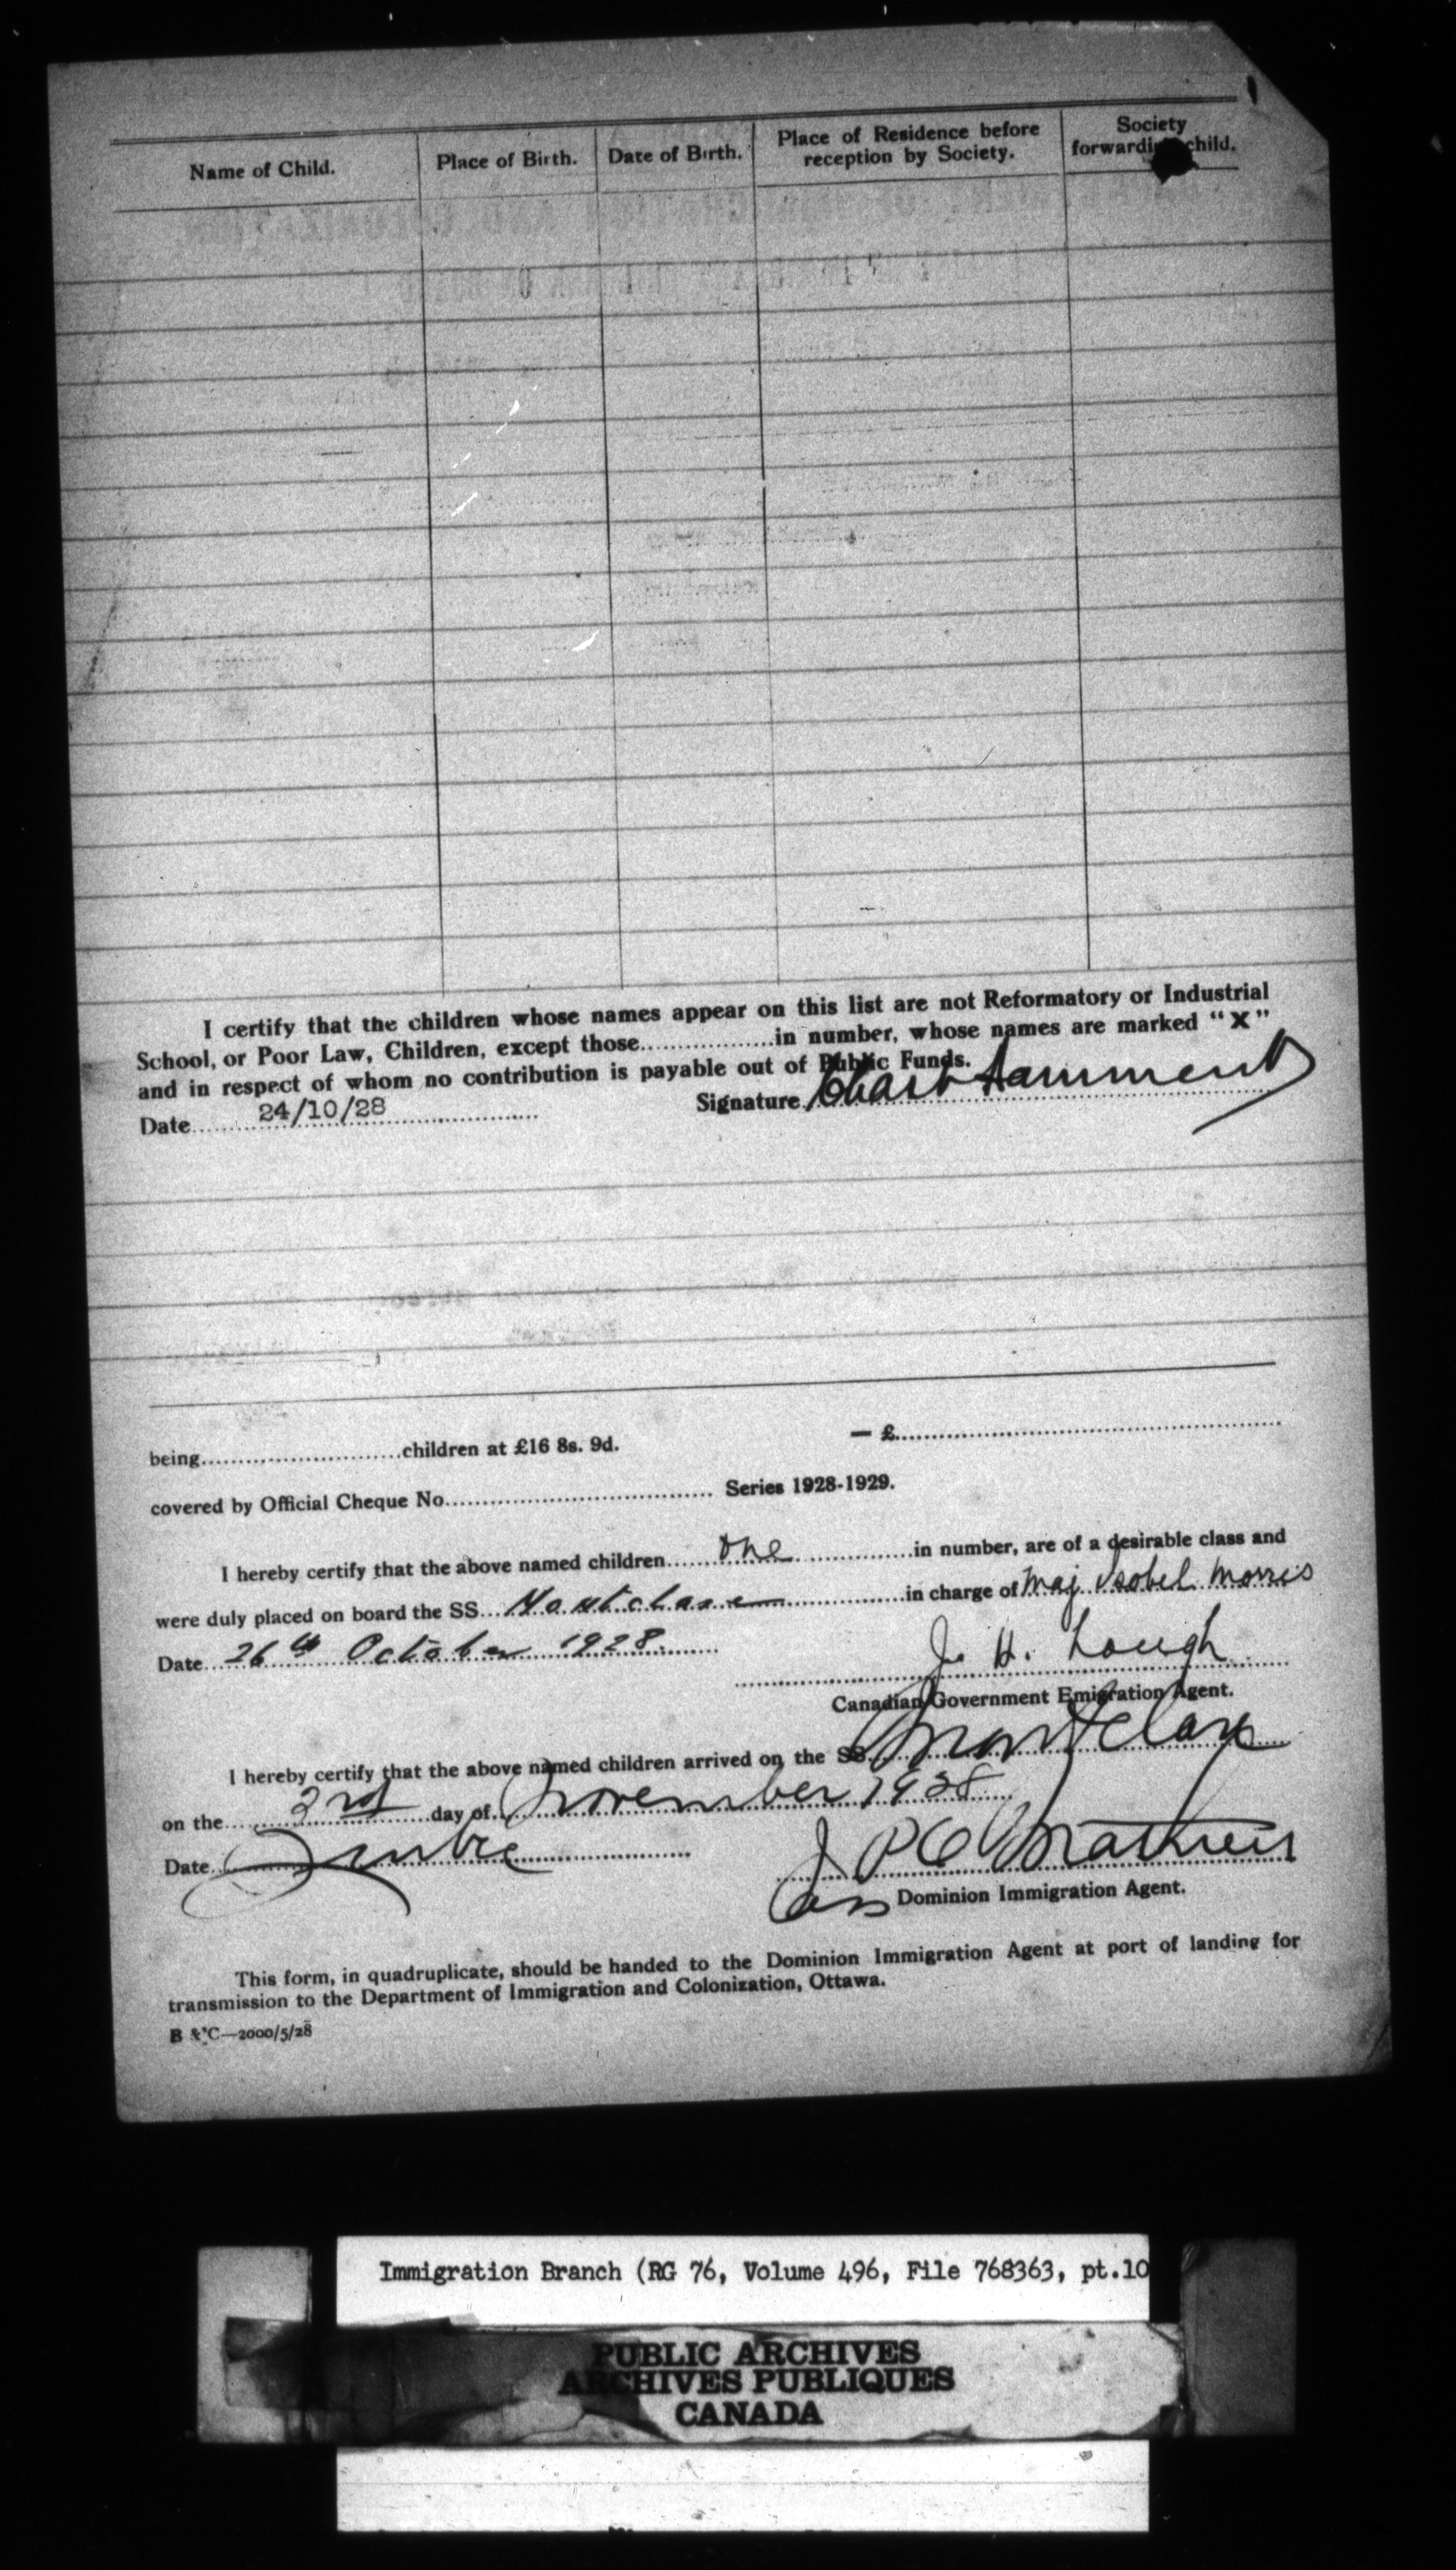 Name of Child. Place of Birth. Date of Birth. Place of Residence before reception by Society. Society forwarding child.
I certify that the children whose names appear on this list are not Reformatory or Industrial
School, or Poor Law, Children, except those..................in number, whose names are marked "X"
and in respect of whom no contribution is payable out of Public Funds.
Date 24/10/28 Signature
being..........................children at £16 8s. 9d. — £
covered by Official Cheque No................................... Series 1928-1929.
I hereby certify that the above named children one in number, are of a desirable class and
were duly placed on board the SS. Montclare in charge of Maj Isobel Morris
Date 26th October 1928.
J. H. Lough
Canadian Government Emigration Agent.
I hereby certify that the above named children arrived on the SS. Montclare
on the 3rd day of November 1928
Date Quebec
J P C Mathieu
Ass Dominion Immigration Agent.
This form, in quadruplicate, should be handed to the Dominion Immigration Agent at port of landing for
transmission to the Department of Immigration and Colonization, Ottawa.
B & C—2000/5/28
Immigration Branch (RG 76, Volume 496, File 768363, pt.10
PUBLIC ARCHIVES
ARCHIVES PUBLIQUES
CANADA